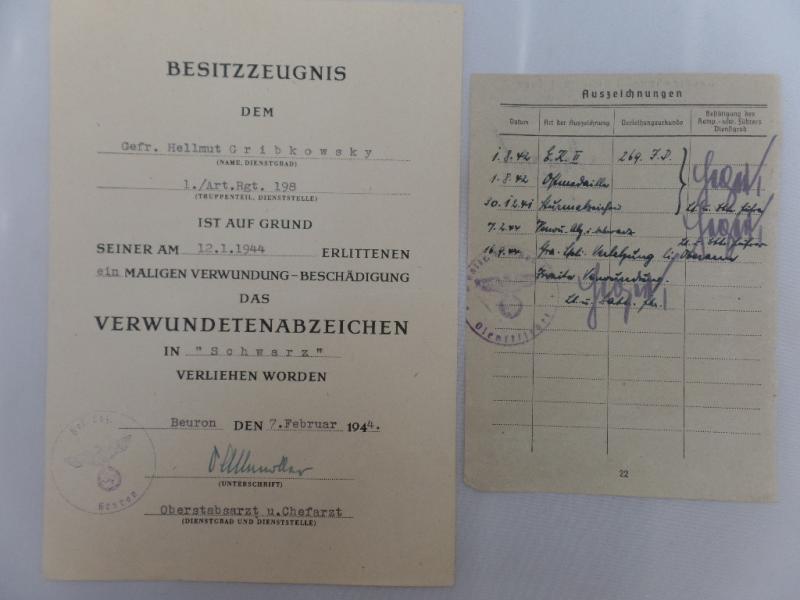 BESITZZEUGNIS
DEM
Gefr. Hellmut Gribkowsky
(NAME, DIENSTGRAD)
1./Art.Rgt. 198
(TRUPPENTEIL, DIENSTSTELLE)
IST AUF GRUND
SEINER AM 12.1.1944 ERLITTENEN
ein MALIGEN VERWUNDUNG–BESCHÄDIGUNG
DAS
VERWUNDETENABZEICHEN
IN "Schwarz"
VERLIEHEN WORDEN
Beuron DEN 7.Februar 1944.
(UNTERSCHRIFT)
Oberstabsarzt u.Chefarzt
(DIENSTGRAD UND DIENSTSTELLE)
Beuron
Auszeichnungen
Datum Art der Auszeichnung Verleihungsurkunde Bestätigung des Komp.- usw. Führers Dienstgrad
1.8.42 E.K. II 269. I.D.
1.8.42 Ostmedaille
30.12.41 Sturmabzeichen
7.2.44 Verw. Abz. i. schwarz
16.9.44 Gra. Spl. Verletzung li. Oberarm
Zweite Verwundung.
22